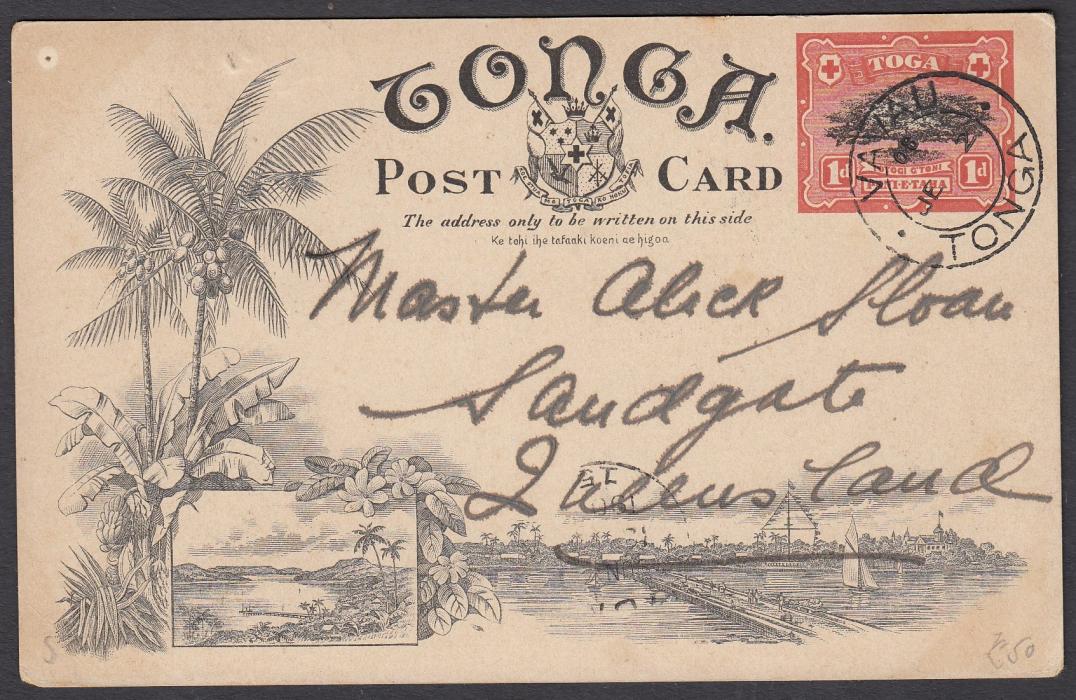 TONGA.
POST CARD
KO TOGA
The address only to be written on this side
Ke tohi ihe tafaaki koeni ae higoa
TOGA
1d 1d
VAVAU
JE
TONGA
Master Alick Sloan
Sandgate
Queensland
£50